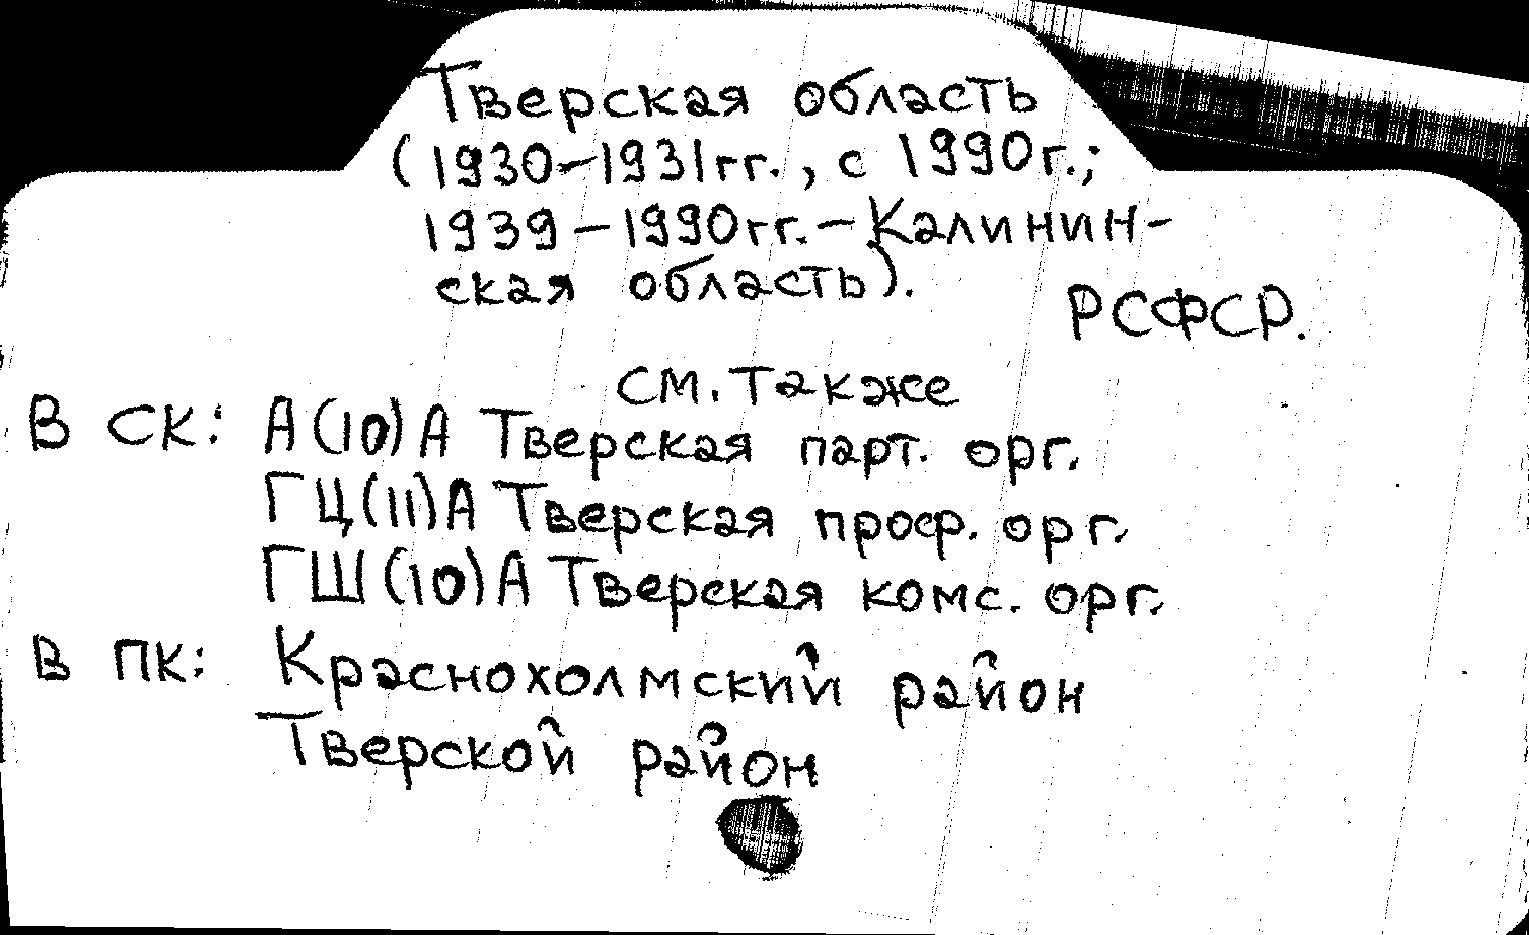 Тверская область
(1930-1931гг., с 1990г.;
1939-1990гг.-Калинин-
ская область).
РСФСР.
см. также
В СК: А(10)А Тверская парт. орг.
ГЦ(11)А Тверская проф. орг.
ГШ(10)А Тверская комс. орг.
В ПК: Краснохолмский район
Тверской район